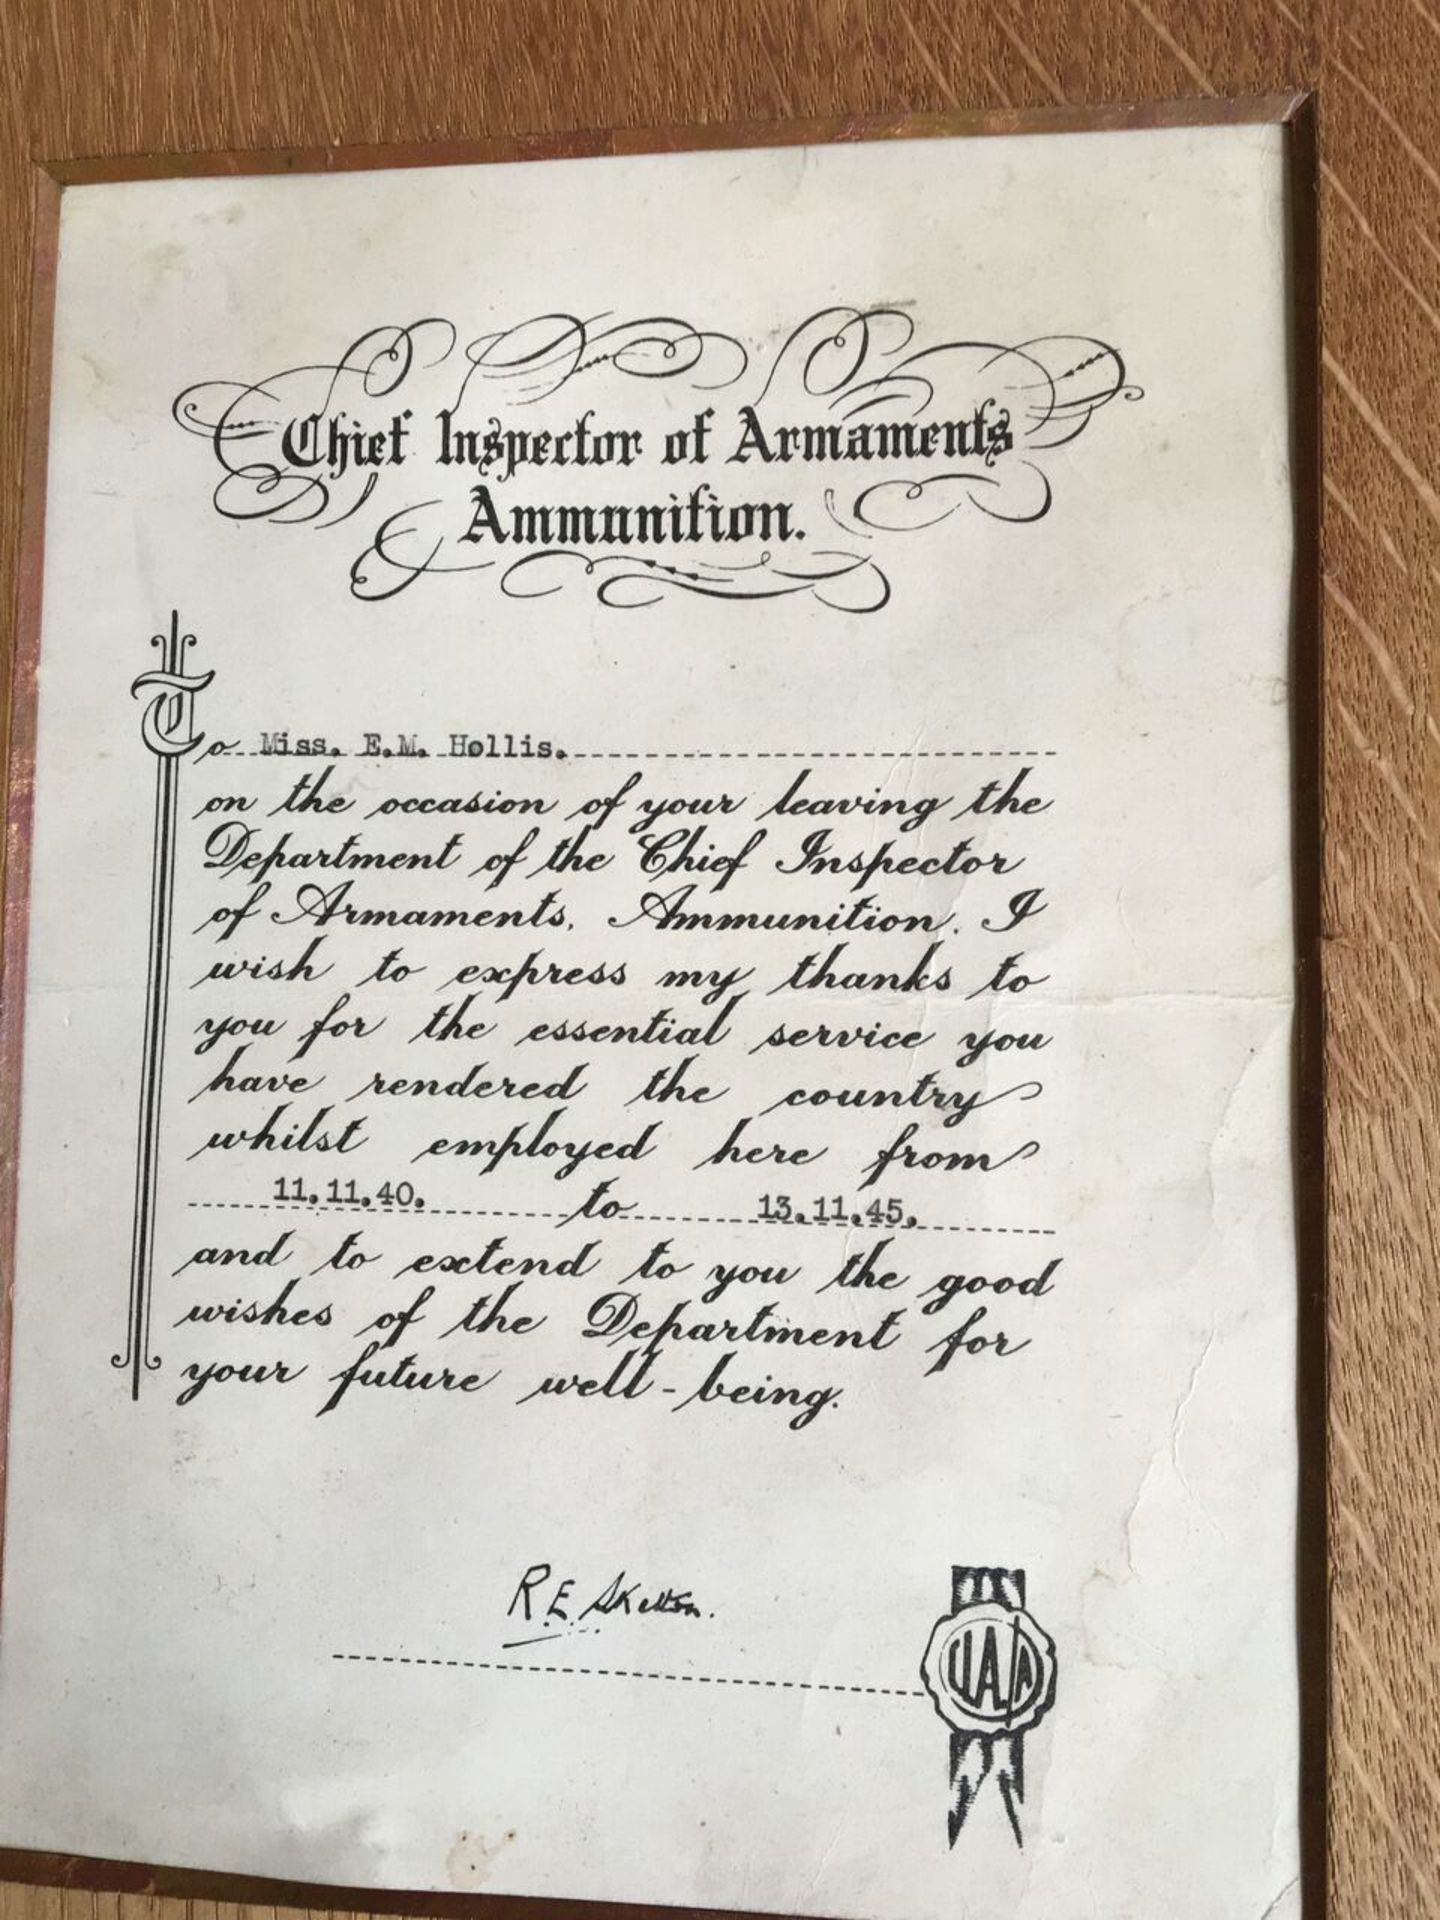 Chief Inspector of Armaments
Ammunition.
To Miss. E.M. Hollis.
on the occasion of your leaving the
Department of the Chief Inspector
of Armaments, Ammunition. I
wish to express my thanks to
you for the essential service you
have rendered the country
whilst employed here from
11.11.40. to 13.11.45.
and to extend to you the good
wishes of the Department for
your future well-being.
R.E. Skelton.